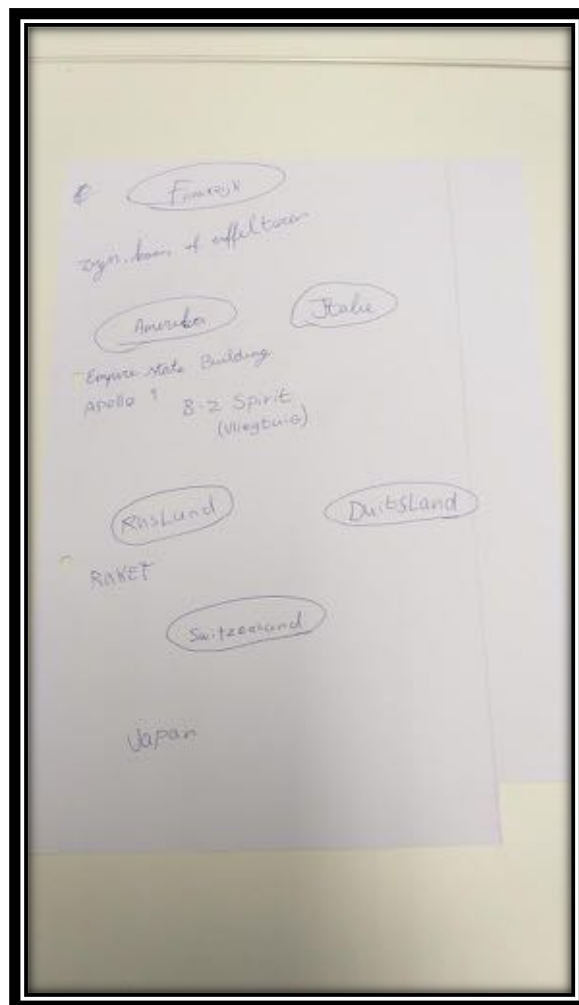 Frankrijk
of eiffeltoren
Amerika Italie
Empire state Building
Apollo 9
B-2 Spirit
(Vliegtuig)
Rusland DuitsLand
RAKET
Switzerland
Japan